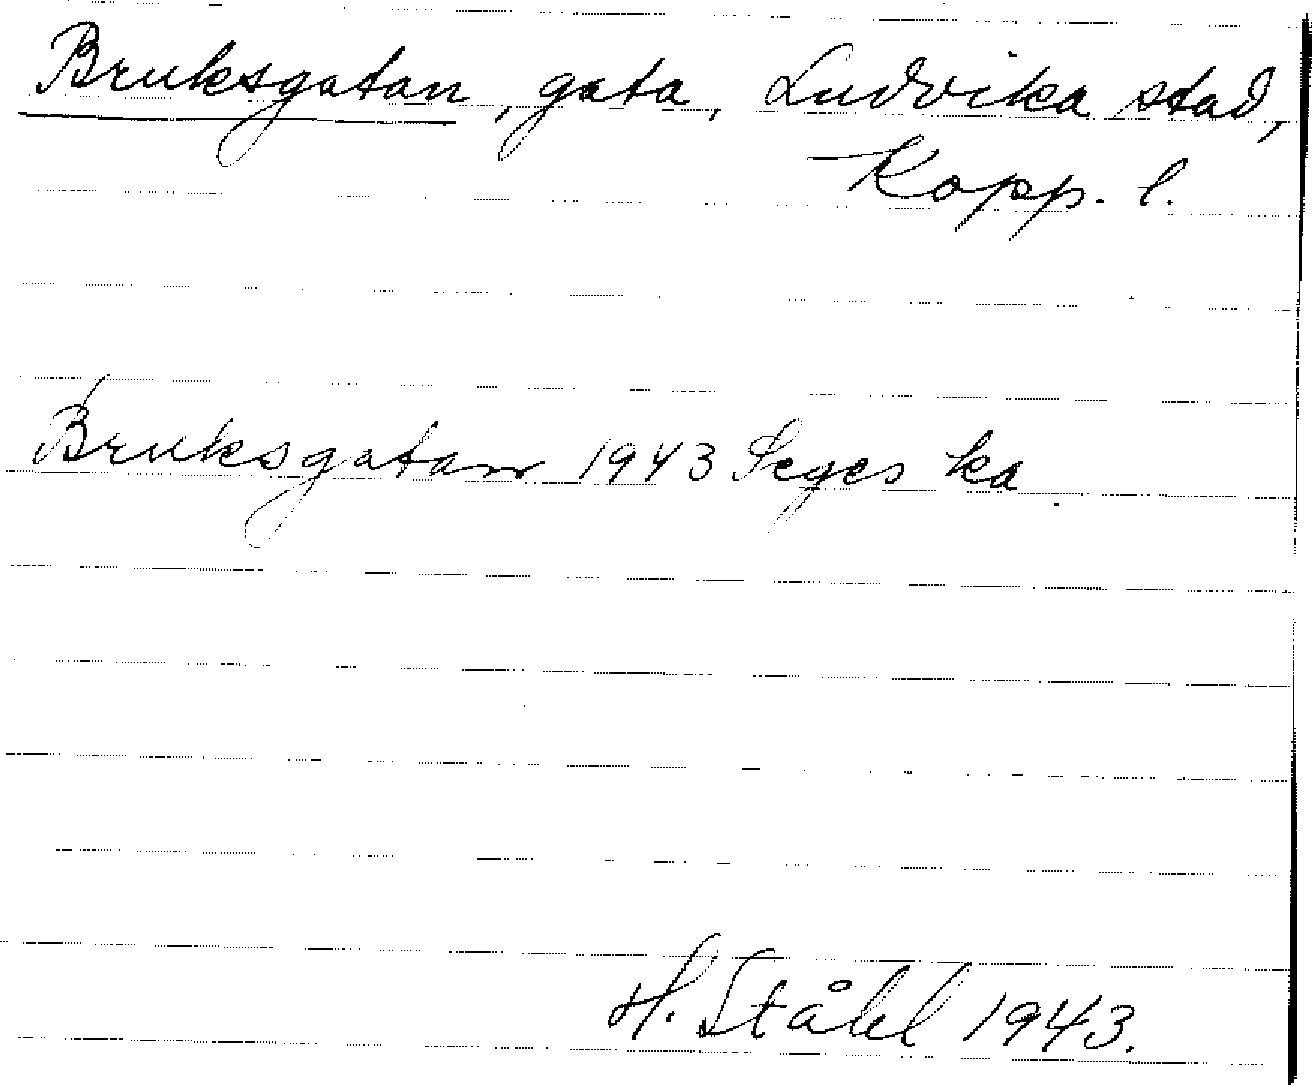 Bruksgatan, gata, Ludvika stad,
Kopp. l.
Bruksgatan 1943 Seges ka
H. Ståhl 1943.